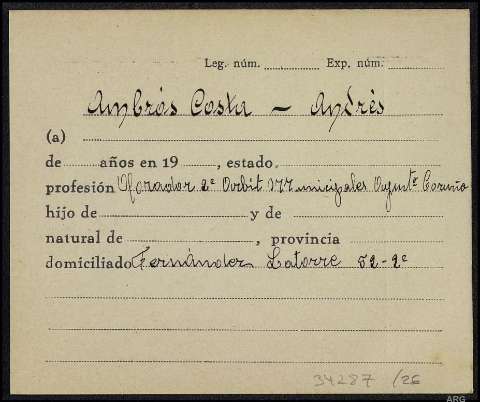 Leg. núm. Exp. núm.
Ambrós Costa - Andrés
(a)
de años en 19 , estado
profesión Aforador 2ª Arbit Municipales Ayuntº Coruña
hijo de y de
natural de , provincia
domiciliado Fernández Latorre 52-2º
34287 /26
ARG